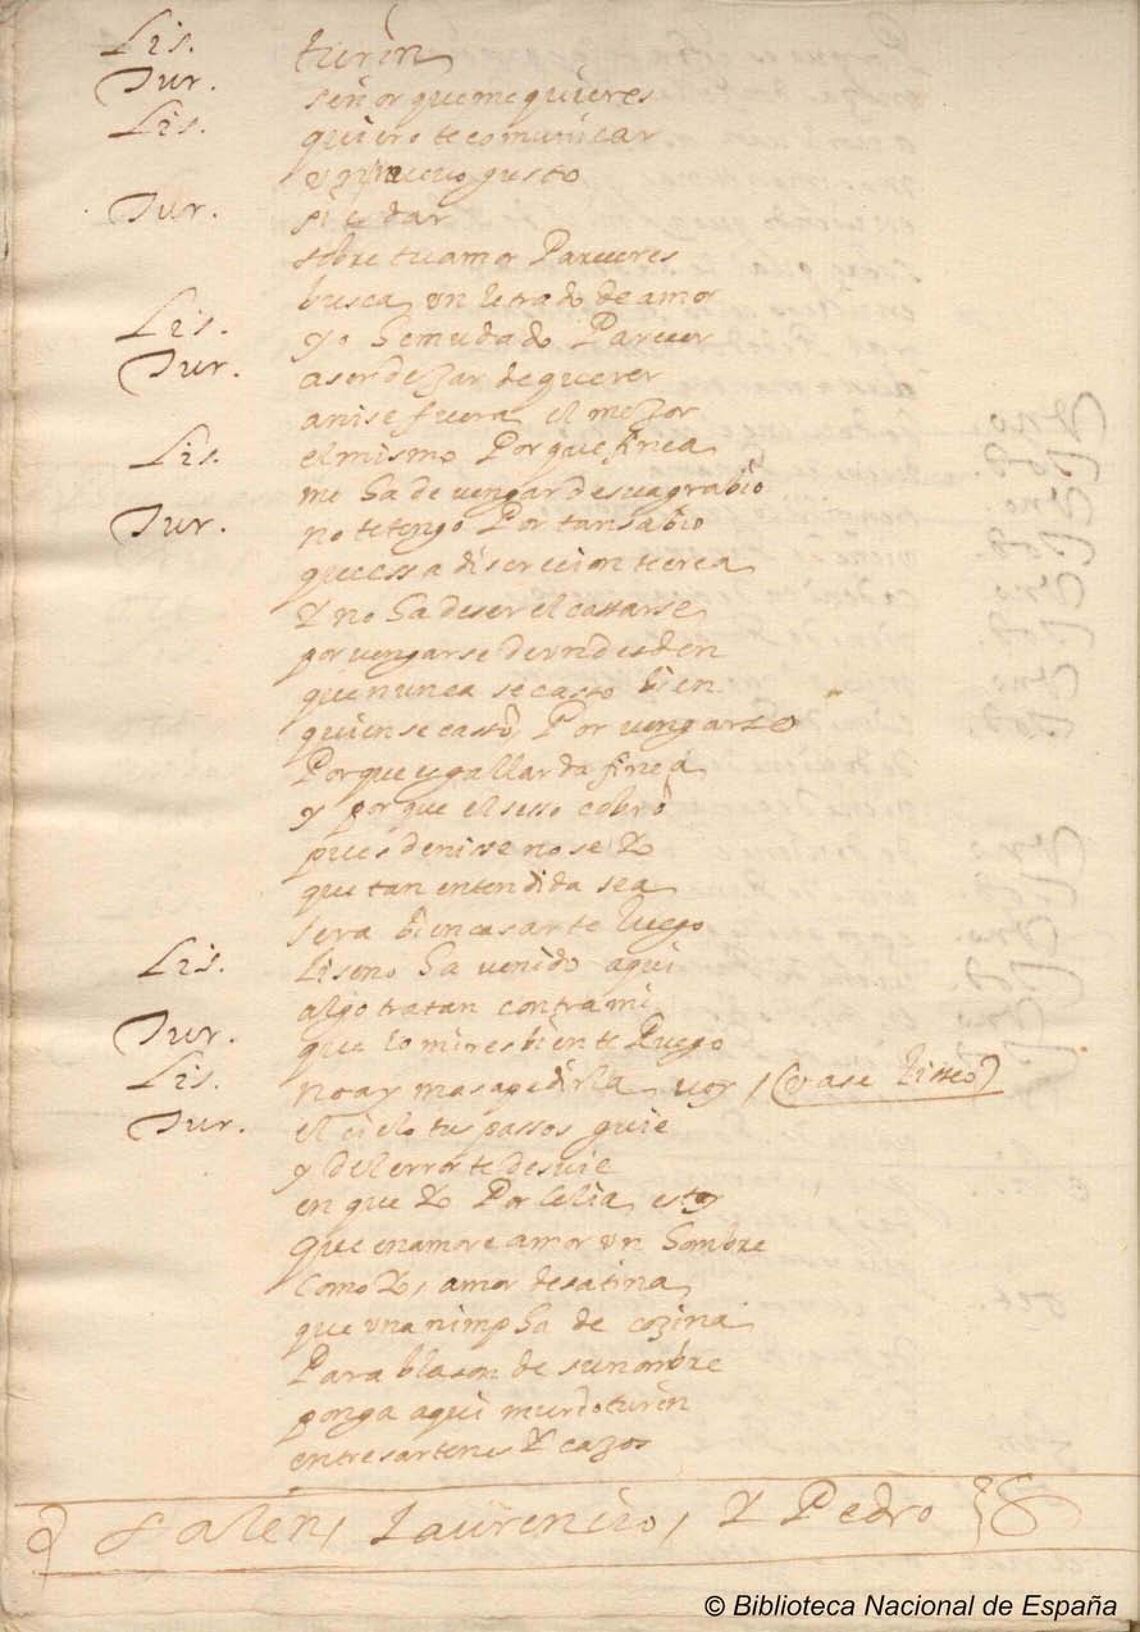 Lis. turin
Tur. señor que me quieres
Lis. quiero te comunicar
vn nueuo gusto
Tur. si es dar
sobre tu amor Pareceres
busca vn letrado de amor
Lis. yo he mudado Parecer
Tur. a ser dexar de querer
a nise fuera el mejor
Lis. el mismo Porque finea
me ha de vengar de su agrabio
Tur. no te tengo Por tan sabio
que essa discrecion te crea
Y no ha de ser el cassarse
por vengarse de vn desden
que nunca se casso bien
quien se cassó Por vengarse
Porque es gallarda finea
y porque el sesso cobró
pues de nisse no se Yo
que tan entendida sea
sera bien casarte luego
Lis. Liseno ha venido aqui
algo tratan contra mi
Tur. que lo mires bien te Ruego
Lis. no ay mas a pedirla voy / (vase Lisseo)
Tur. el cielo tus passos guie
y del error te desuie
en que Yo Por celia estoy
que enamore amor vn hombre
como Yo, amor desatina
que vna nimpha de cozina
Para blason de su nombre
ponga aqui murio turin
entre sartenes Y cazos
Salen, Laurencio, Y Pedro
© Biblioteca Nacional de España